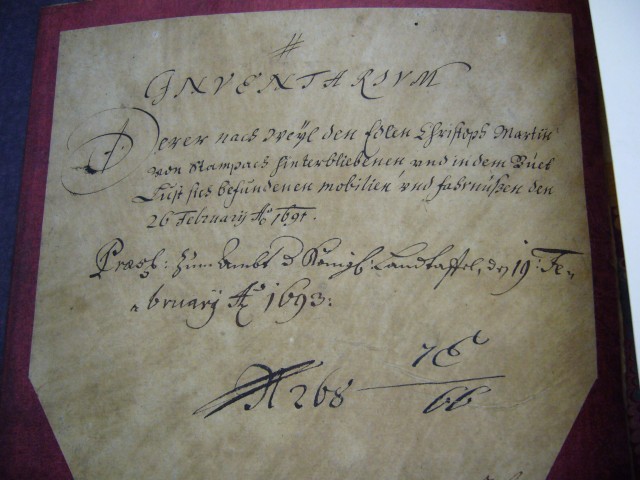 #
INVENTARIUM
Derer nach Weyl den Edlen Christoph Martin
von Stampach hinterbliebenen und in dem Guet
Lust sich befundenen mobilien und fahrnüßen den
26 February Aº 1691.
Præs: Zum Ambt d Königl: Landtaffel, dn 19: Fe„
„bruarÿ Aº 1693:
268 76
66